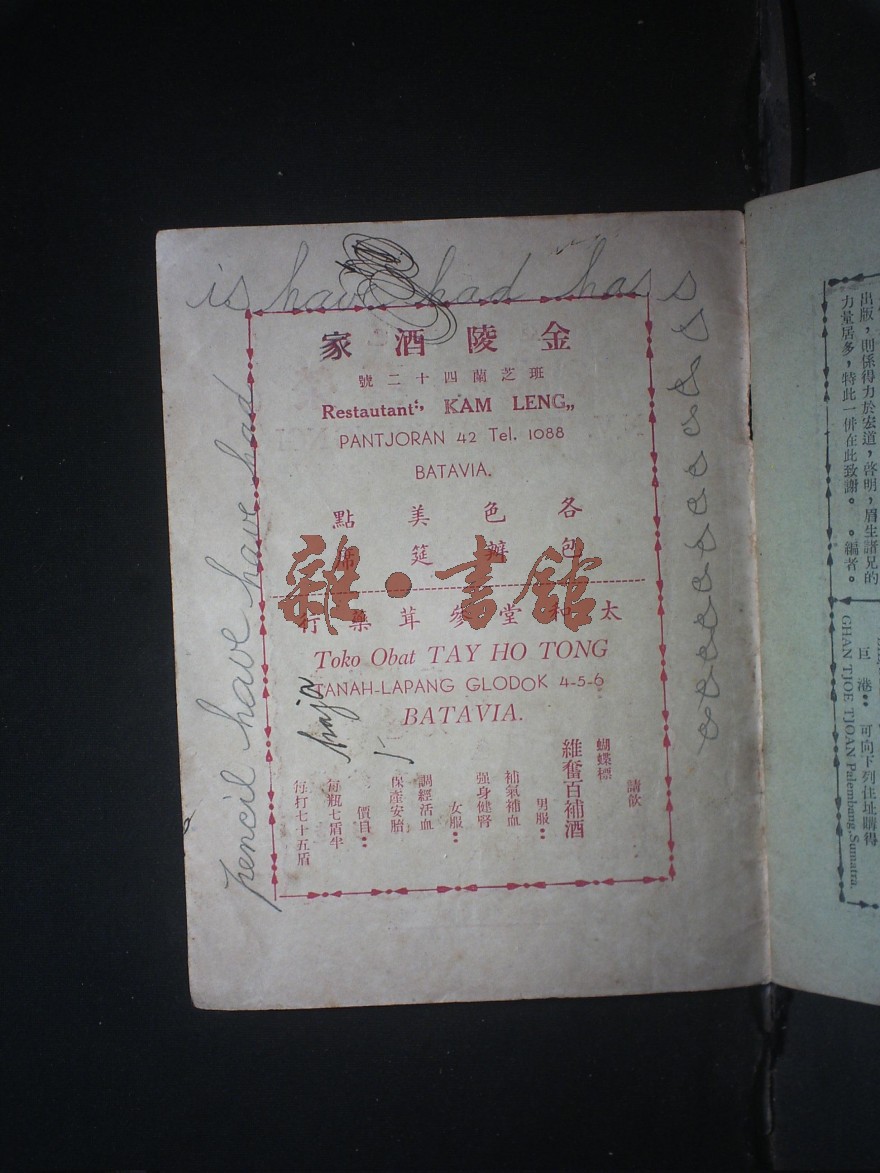 is have had has s
s
s
s
s
s
s
s
s
s
s
s
pencil have have have had
金陵酒家
班芝蘭四十二號
Restautant“ KAM LENG„
PANTJORAN 42 Tel. 1088
BATAVIA.
各色美點
包辦筵席
雜·書館
太和堂參茸藥行
Toko Obat TAY HO TONG
TANAH-LAPANG GLODOK 4-5-6
BATAVIA.
請飲
蝴蝶標
維奮百補酒
男服：
補氣補血
强身健腎
女服：
調經活血
保產安胎
價目：
每瓶七盾半
每打七十五盾
出版，則係得力於宏道，啓明，眉生諸兄的
力量居多，特此一併在此致謝。　。編者。
巨港：可向下列住址購得
GHAN TJOE TJOAN Palembang, Sumatra.